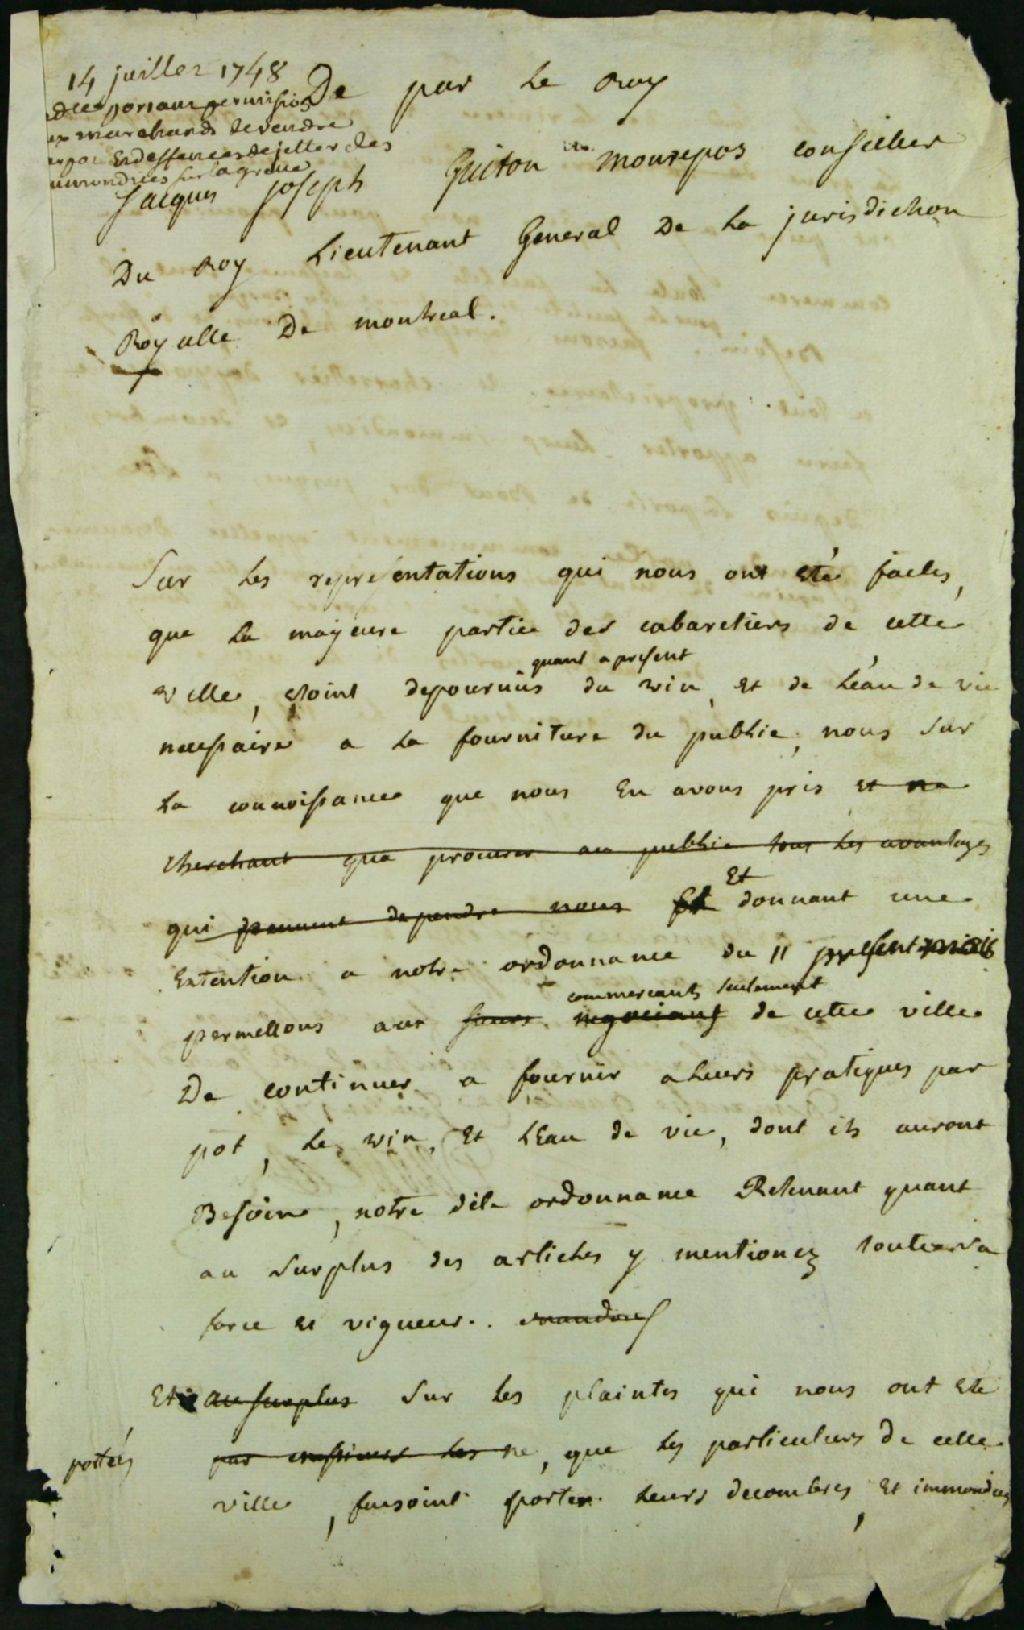 14 juillet 1748
portant permission
marchands de vendre
pot Et deffences de jetter des
immondices sur la greve
De par le Roy
Jacques Joseph Guiton Monrepos conseiller
Du Roy Lieutenant General De la jurisdiction
Royalle De montreal.
Sur les representations qui nous ont eté faites,
que la majeure partie des cabaretiers de cette
quant a present
ville, étoint depourvüs du vin, et de l'eau de vie
necessaire a la fourniture du public, nous sur
la connoissance que nous En avons pris et ne
cherchant que procurer au public tous les avantages
Et
qui peuvent dependre nous Et donnant une
Extention a notre ordonnance du 11 present mois
commercants seulement
permettons aux negocians de cette ville
De continuer a fournir a leurs pratiques par
pot, le vin, Et l'Eau de vie, dont ils auront
Besoin, notre dite ordonnance Retenant quant
au surplus des articles y mentionez toute sa
force et vigueur. mandons
Et au surplus sur les plaintes qui nous ont ete
portées
par les, que les particuliers de cette
ville, faisoint porter leurs decombres, Et immondices